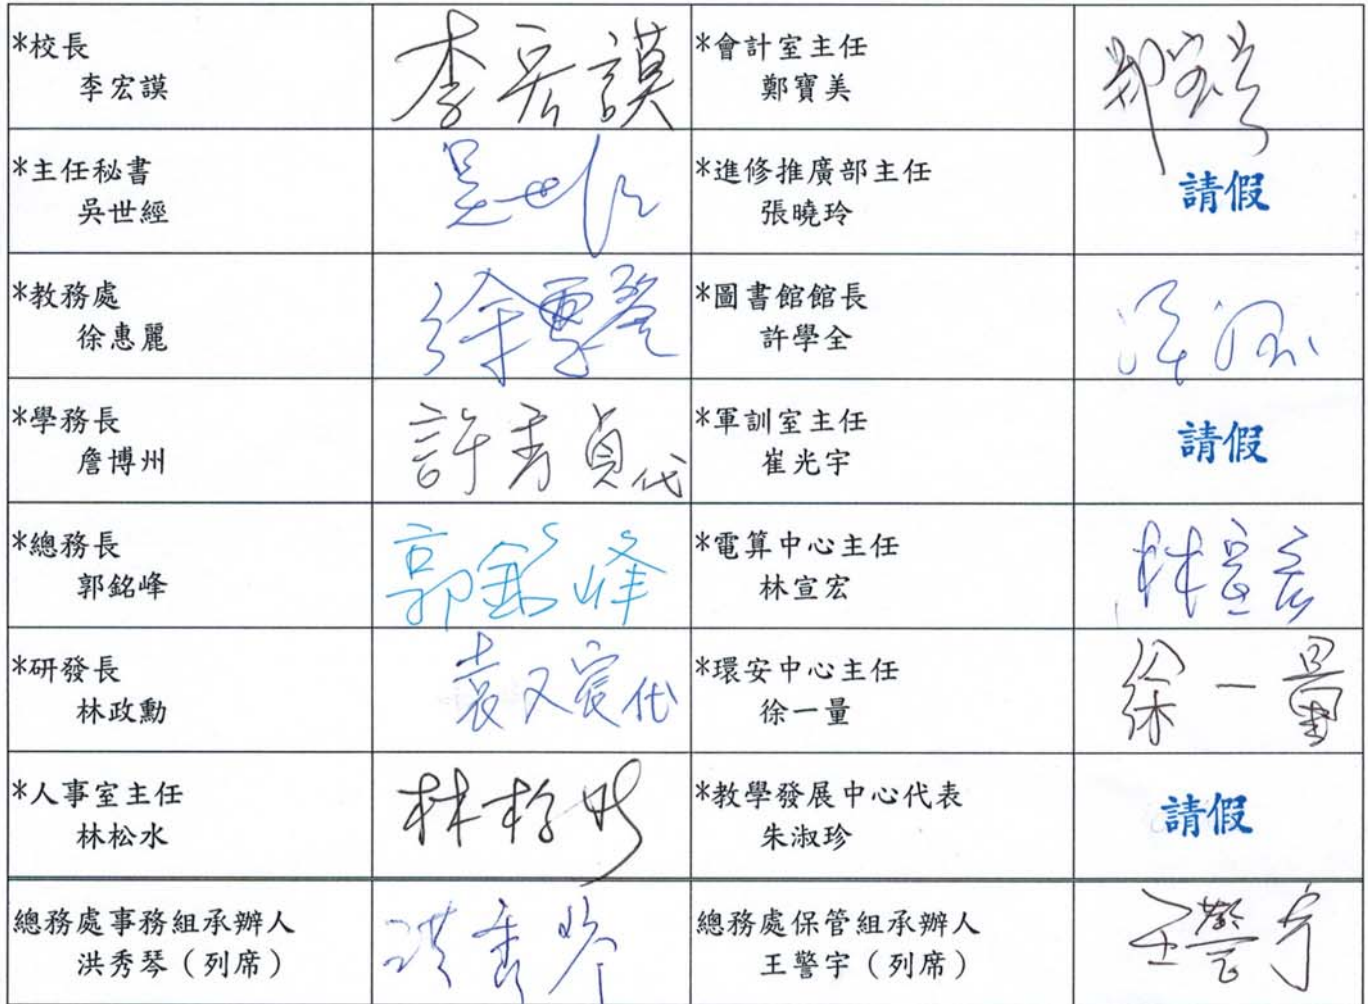 *校長
李宏謨
李宏謨
*會計室主任
鄭寶美
*主任秘書
吳世經
吳世經
*進修推廣部主任
張曉玲
請假
*教務處
徐惠麗
徐惠麗
*圖書館館長
許學全
*學務長
詹博州
許秀貞代
*軍訓室主任
崔光宇
請假
*總務長
郭銘峰
郭銘峰
*電算中心主任
林宣宏
林宣宏
*研發長
林政勳
*環安中心主任
徐一量
徐一量
*人事室主任
林松水
*教學發展中心代表
朱淑珍
請假
總務處事務組承辦人
洪秀琴（列席）
洪秀琴
總務處保管組承辦人
王警宇（列席）
王警宇